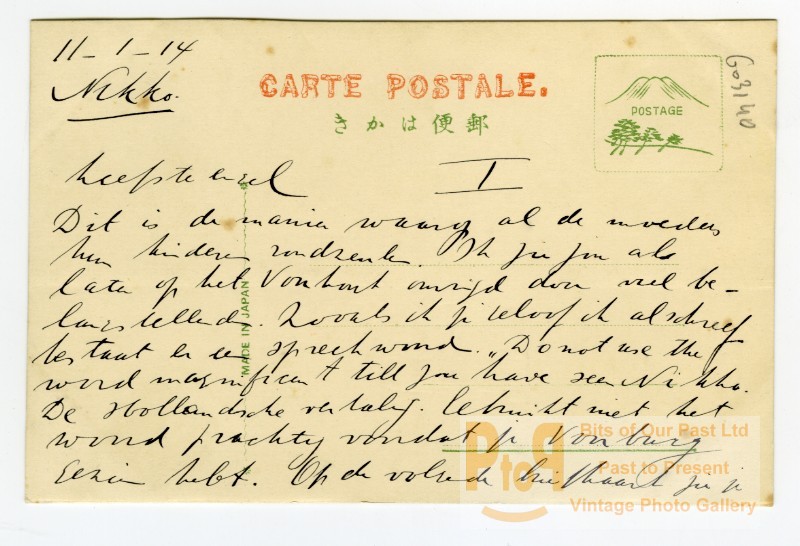 11-1-14
Nikko.
CARTE POSTALE.
きかは便郵
POSTAGE
603140
Liefste engel
I
Dit is de manier waarop al de moeders
hun kinderen rondzeulen. Ik zie jou als
later op het Voorhout omringd door veel be-
langstellenden. Zooals ik je geloof ik al schreef
bestaat er een spreekwoord. „Do not use the
word magnificant till you have seen Nikko.
De Hollandsche vertaling. Gebruikt niet het
woord prachtig voordat je Voorburg
gezien hebt. Op de volgende briefkaart zie je
MADE IN JAPAN
PtoP
Bits of Our Past Ltd
Past to Present
Vintage Photo Gallery